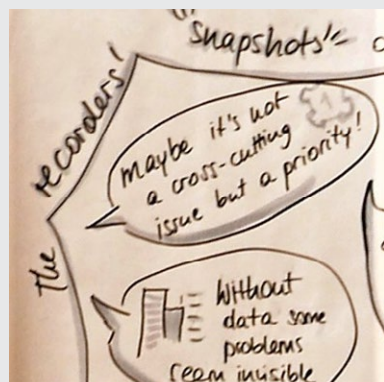 the recorders'
"snapshots"
maybe it's not
a cross-cutting
issue but a priority!
Without
data some
problems
seem invisible